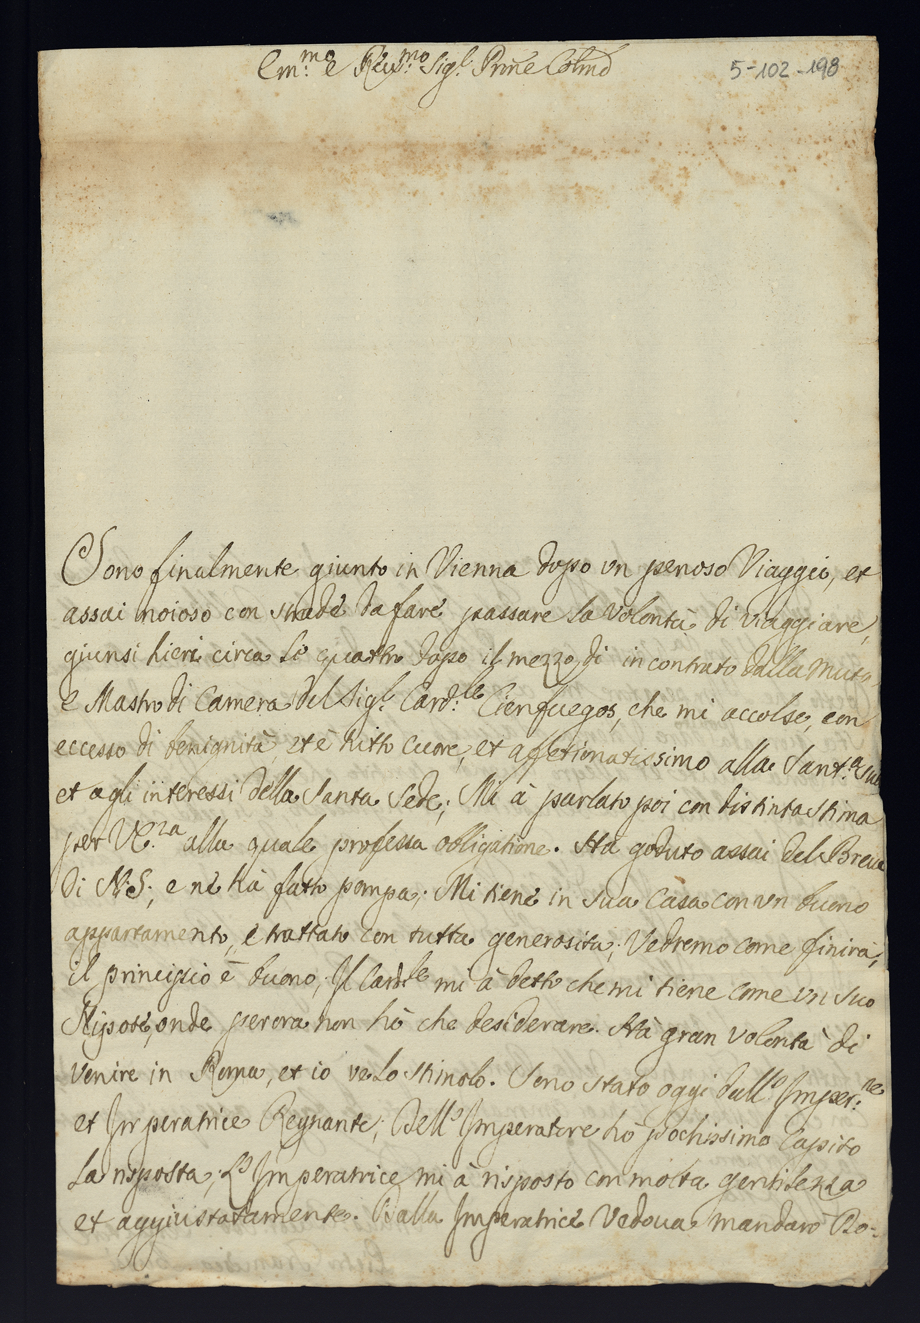 Em:mo e Rev:mo Sig:r Prne Colmo
5-102-198
Sono finalmente giunto in Vienna dopo un penoso Viaggio, et
assai noioso con strade da fare passare la volontà di viaggiare,
giunsi hieri circa le quattro dopo il mezzo dì incontrato dalla muta,
e Mastro di Camera del Sig:r Card:le Cienfuegos, che mi accolse, con
eccesso di benignità, et è tutto cuore, et affetionatissimo alla Sant:à Sua
et agli interessi della Santa Sede; Mi à parlato poi con distinta stima
per VE:za alla quale professa obligatione. Hà goduto assai del Breve
di N.S; e ne hà fatto pompa; Mi tiene in sua Casa con un buono
appartamento, e trattato con tutta generosità; Vedremo come finirà,
il principio è buono, Il Card:le mi à detto che mi tiene come un suo
Nipote, onde per ora non hò che desiderare. Hà gran volontà di
venire in Roma, et io ve lo stimolo. Sono stato oggi dall' Imper:re
et Imperatrice Regnante; Dell' Imperatore hò pochissimo capito
la risposta; L' Imperatrice mi à risposto con molta gentilezza
et aggiustatamente. Dalla Imperatrice Vedova mandarò Do-